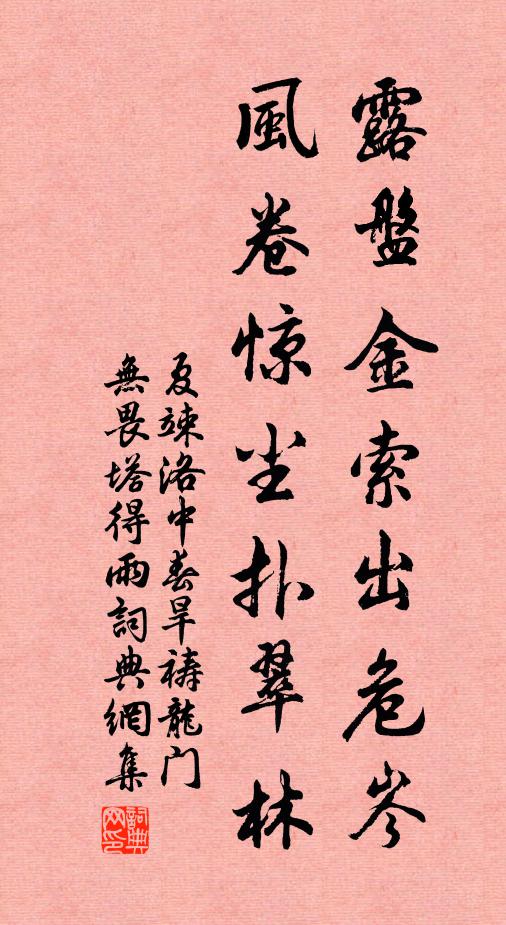 露盤金索出危岑
風卷惊尘扑翠林
夏竦洛中春旱祷龍门
無畏塔得雨詞典網集
詞典网印